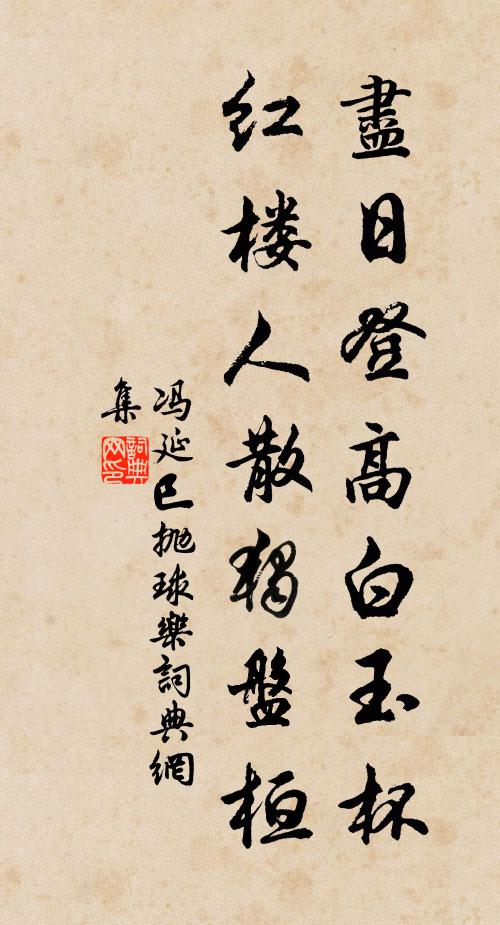 盡日登高白玉杯
红楼人散獨盤桓
冯延巳抛球樂詞典網
集
詞典网印